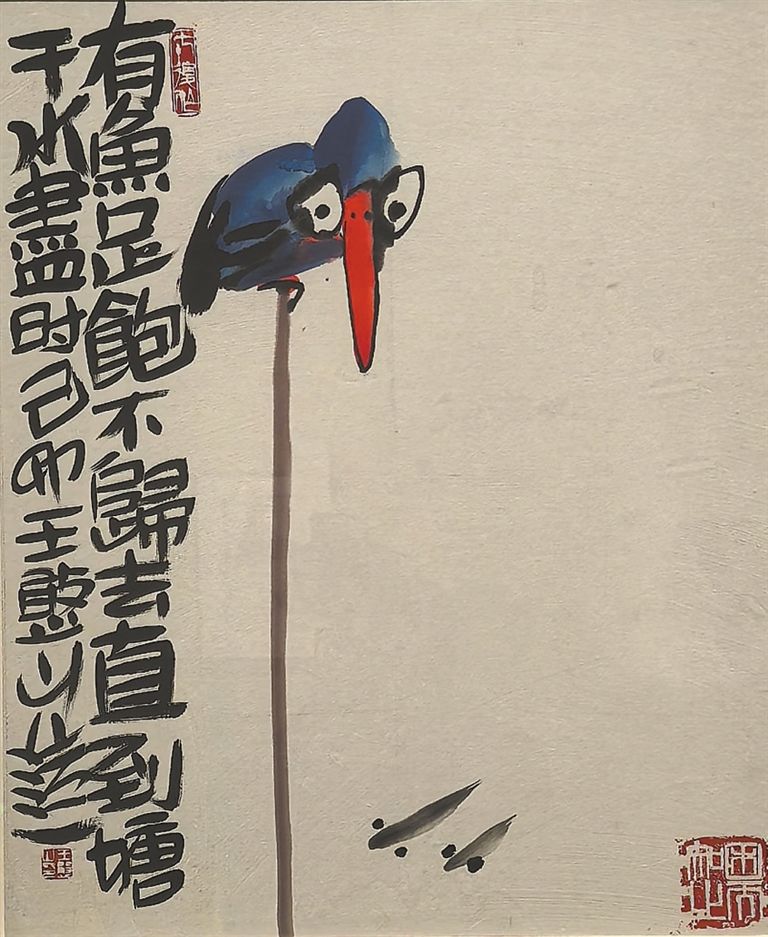 有魚足飽不歸去直到塘
干水盡时己卯王憨山